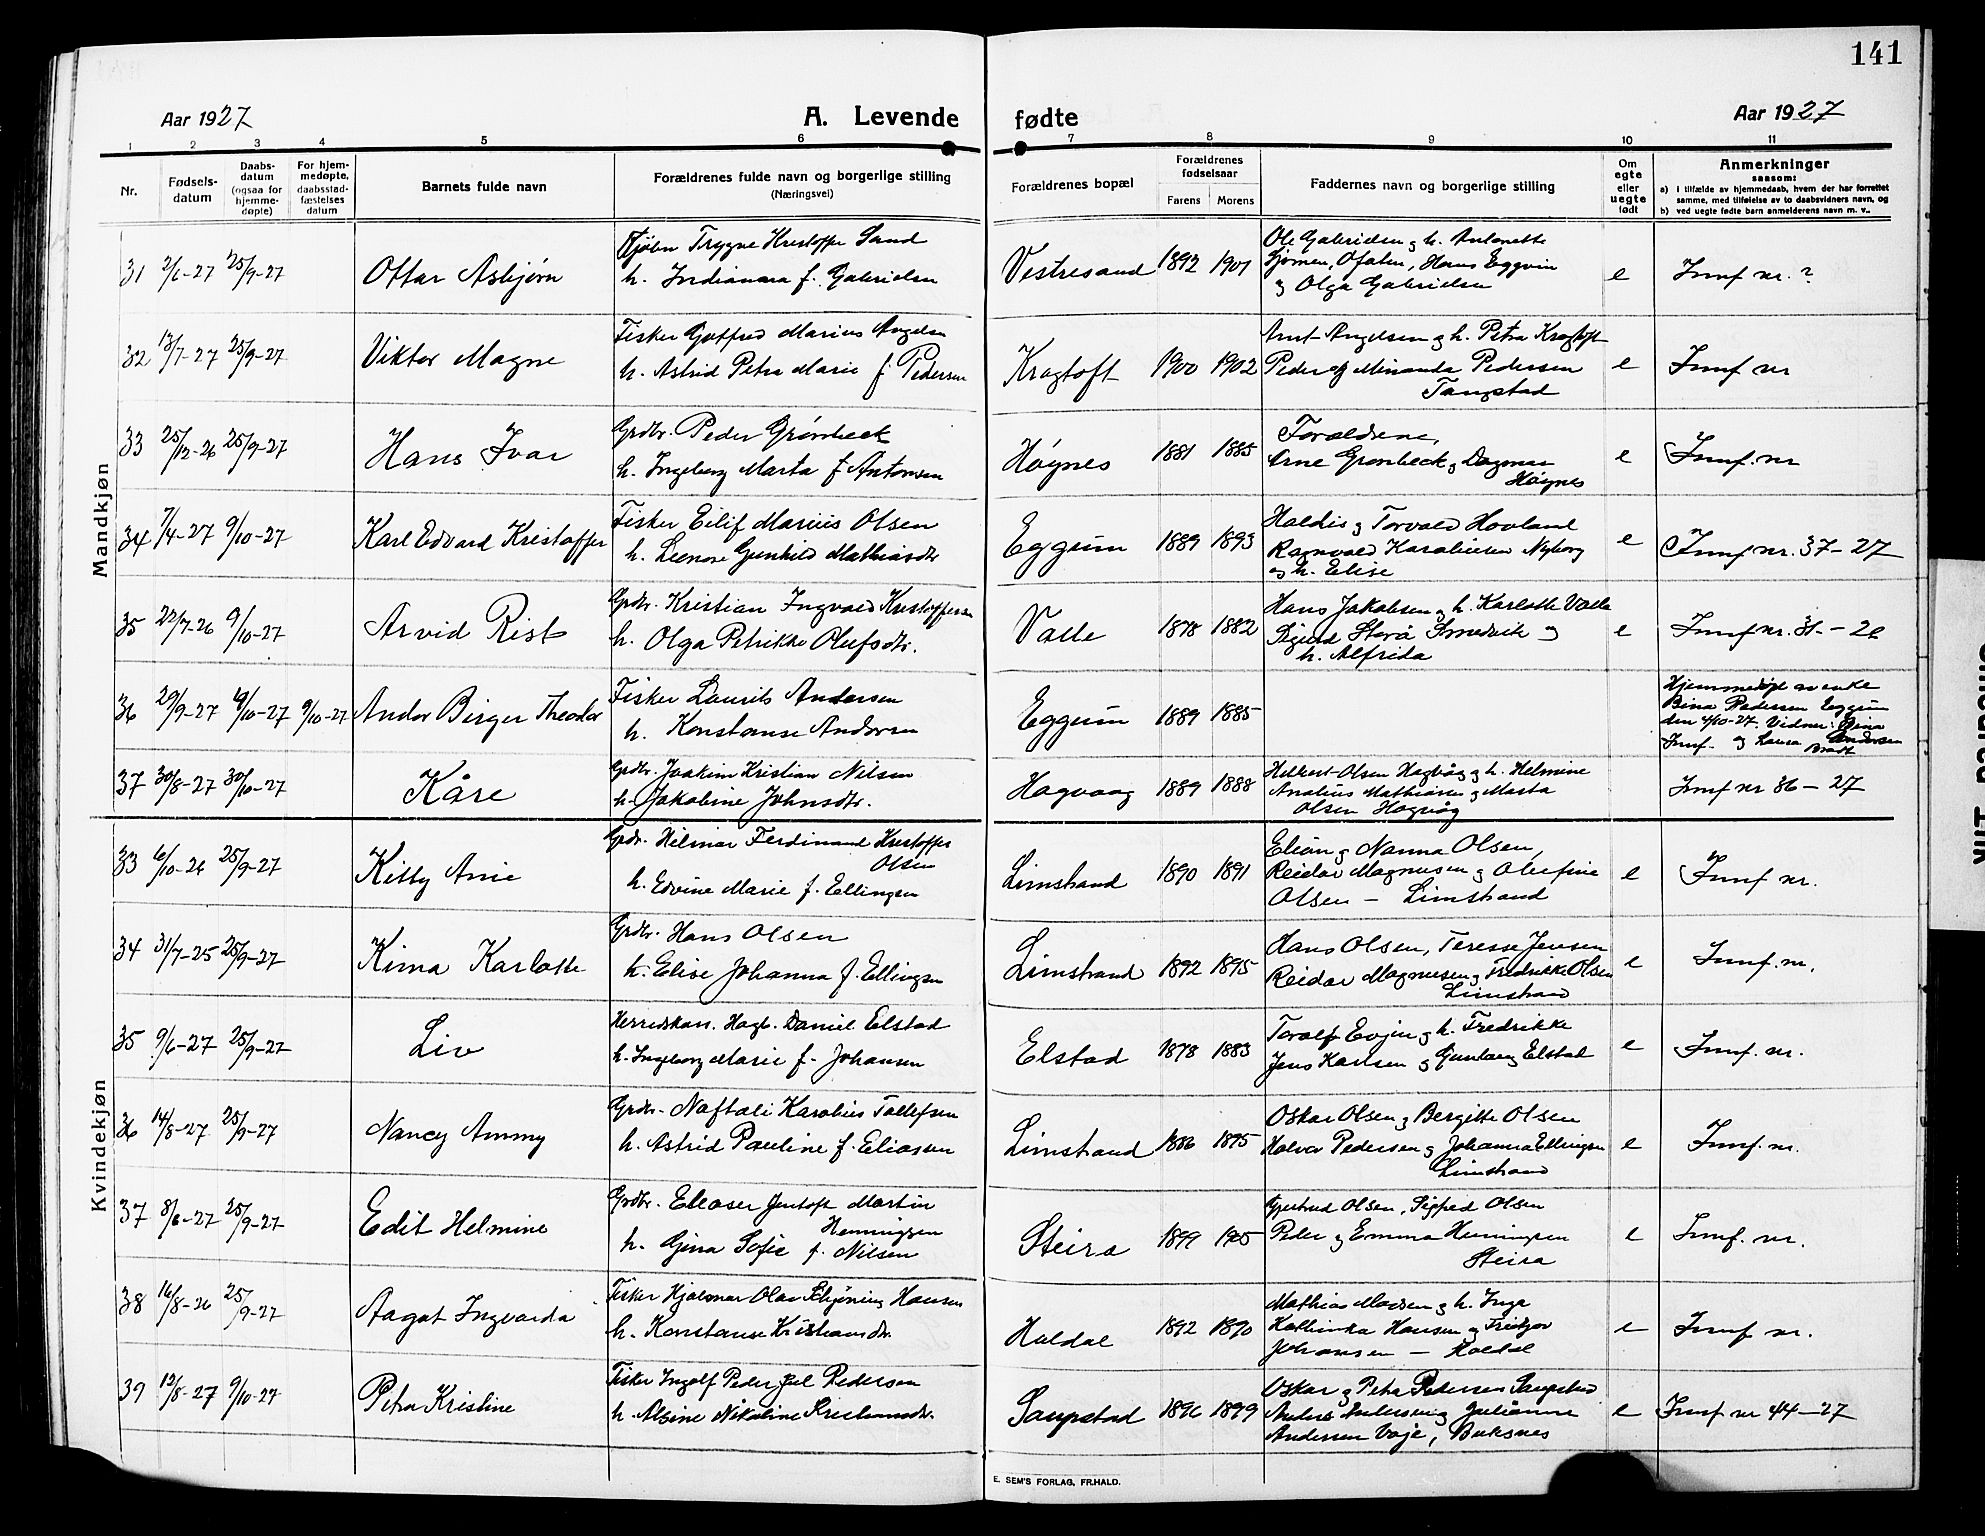 141
Aar 1927 A. Levende fødte Aar 1927
1 2 3 4 5 6 7 8 9 10 11
Nr.
Fødsels-
datum
Daabs-
datum
(ogsaa for
hjemme-
døpte)
For hjem-
medøpte,
daabsstad-
fæstelses
datum
Barnets fulde navn
Forældrenes fulde navn og borgerlige stilling
(Næringsvei)
Forældrenes bopæl
Forældrenes
fødselsaar
Farens Morens
Faddernes navn og borgerlige stilling
Om
egte
eller
uegte
født
Anmerkninger
saasom:
a) i tilfælde av hjemmedaab, hvem der har forrettet
samme, med tilføielse av to daabsvidners navn, og
b) ved uegte fødte barn anmelderens navn m. v..
Mandkjøn
31 2/6-27 25/9-27 Ottar Asbjørn
Trygve Kristoffer Sand
h. Indianara f. Gabrielsen
Vestresand 1892 1901
Ole Gabrielsen og h. Antonette
Gjømen, Ofoten, Hans Eggvin
og Olga Gabrielsen
e Innf nr. ?
32 13/7-27 25/9-27 Viktor Magne
Fisker Gotfred Marius Angelsen
h. Astrid Petra Marie f. Pedersen
Kragtoft 1900 1902
Arnt Angelsen og h. Petra Kragtoft
Peder og Minanda Pedersen
Tangstad
e Innf nr
33 25/12-26 25/9-27 Hans Ivar
Grdbr. Peder Grønbeck
h. Ingeborg Marta f. Antonsen
Høynes 1881 1885
Foreldrene,
Arne Grønbeck og Dagmar
Høynes
e Innf. nr
34 7/4-27 9/10-27 Karl Edvard Kristoffer
Fisker Eilif Marius Olsen
h. Leonore Gunhild Mathiasdtr
Eggum 1889 1893
Haldis og Torvald Hovland
Ragnvald Karoliussen Nyborg
og h. Elise
e Innf nr. 37-27
35 22/7-26 9/10-27 Arvid Rist
Grdbr. Kristian Ingvald Kristoffersen
h. Olga Petrikke Olufsdtr.
Valle 1878 1882
Hans Jakobsen og h. Karlotte Valle
Sigurd Storå Smedvik og
h. Alfrida
e Innf nr. 31-26
36 29/9-27 4/10-27 9/10-27 Andor Birger Theodor
Fisker Laurits Andersen
h. Konstanse Andersen
Eggum 1889 1885
Hjemmedøpt av enke
Bina Pedersen Eggum
den 4/10-27. Vidner: Gina
Innf. og Laura Andersen
Bradt
37 30/8-27 30/10-27 Kåre
Grdbr. Joakim Kristian Nilsen
h. Jakobine Johnsdtr.
Hagvaag 1889 1888
Helbert Olsen Hagvåg og h. Helmine
Analius Mathiasen og Marta
Olsen Hagvåg
Innf nr 36-27
Kvindekjøn
33 6/10-26 25/9-27 Kitty Anie
Grdr. Hilmar Ferdinand Kristoffer
Olsen
h. Edvine Marie f. Ellingsen
Limstrand 1890 1891
Elión og Nanna Olsen,
Reidar Magnussen og Olufine
Olsen - Limstrand
e Innf nr.
34 31/7-25 25/9-27 Kima Karlotte
Grdbr. Hans Olsen
h. Elise Johanna f. Ellingsen
Limstrand 1892 1895
Hans Olsen, Teresse Jensen
Reidar Magnussen og Fredrikke Olsen
Limstrand
e Innf. nr.
35 9/6-27 25/9-27 Liv
Herredskass. Hagb. Daniel Elstad
h. Ingeborg Marie f. Johansen
Elstad 1878 1883
Toralf Evjen og h. Fredrikke
Jens Karlsen og Gunborg Elstad
e Innf. nr.
36 14/8-27 25/9-27 Nancy Ammy
Grdr. Naftali Karolius Tollefsen
h. Astrid Pauline f. Eliassen
Limstrand 1886 1895
Oskar Olsen og Bergitte Olsen
Halvor Pedersen og Johanna Ellingsen
Limstrand
e Innf. nr.
37 8/6-27 25/9-27 Edit Helmine
Grdbr. Eleaser Jentoft Martin
Henningsen
h. Gjina Sofie f. Nilsen
Steira 1899 1905
Gjertrud Olsen, Sigfred Olsen
Peder og Emma Henningsen
Steira
e Innf. nr.
38 16/8-26 25/9-27 Aagot Ingvarda
Fisker Hjalmar Olav Schjøning Hansen
h. Konstanse Kristiansdtr.
Haldal 1892 1890
Mathias Madsen og h. Inga
Kathinka Hansen og Fridtjov
Johansen - Haldal
e Innf nr.
39 12/8-27 9/10-27 Petra Kristine
Fisker Ingolf Peder Juel Pedersen
h. Alsine Nikoline Kristiansdtr.
Saupstad 1896 1899
Oskar og Petra Pedersen Saupstad
Anders Andersen og Julianne
Andersen Voje, Buksnes
e Innf nr 44-27
E. SEM'S FORLAG, FR.HALD.